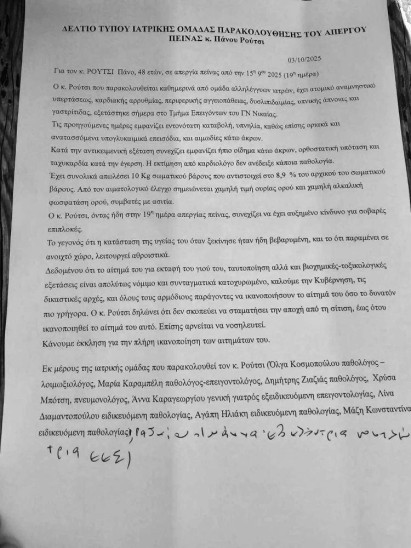 ΔΕΛΤΙΟ ΤΥΠΟΥ ΙΑΤΡΙΚΗΣ ΟΜΑΔΑΣ ΠΑΡΑΚΟΛΟΥΘΗΣΗΣ ΤΟΥ ΑΠΕΡΓΟΥ
ΠΕΙΝΑΣ κ. Πάνου Ρούτσι
03/10/2025
Για τον κ. ΡΟΥΤΣΙ Πάνο, 48 ετών, σε απεργία πείνας από την 15η 9ου 2025 (19η ημέρα)
Ο κ. Ρούτσι που παρακολουθείται καθημερινά από ομάδα αλληλέγγυων ιατρών, έχει ατομικό αναμνηστικό
υπερτάσεως, καρδιακής αρρυθμίας, περιφερικής αγγειοπάθειας, δυσλιπιδαιμίας, υπνικής άπνοιας και
γαστρίτιδας, εξετάστηκε σήμερα στο Τμήμα Επειγόντων του ΓΝ Νικαίας.
Τις προηγούμενες ημέρες εμφανίζει εντονότατη καταβολή, υπνηλία, καθώς επίσης αρκετά και
ανατασσόμενα υπογλυκαιμικά επεισόδια, και αιμωδίες κάτω άκρων.
Κατά την αντικειμενική εξέταση συνέχιζει εμφανίζει ήπιο οίδημα κάτω άκρων, ορθοστατική υπόταση και
ταχυκαρδία κατά την έγερση. Η εκτίμηση από καρδιολόγο δεν ανέδειξε κάποια παθολογία.
Έχει συνολικά απωλέσει 10 Kg σωματικού βάρους που αντιστοιχεί στο 8,9 % του αρχικού του σωματικού
βάρους. Από τον αιματολογικό έλεγχο σημειώνεται χαμηλή τιμή ουρίας ορού και χαμηλή αλκαλική
φωσφατάση ορού, συμβατές με ασιτία.
Ο κ. Ρούτσι, όντας ήδη στην 19η ημέρα απεργίας πείνας, συνεχίζει να έχει αυξημένο κίνδυνο για σοβαρές
επιπλοκές.
Το γεγονός ότι η κατάσταση της υγείας του όταν ξεκίνησε ήταν ήδη βεβαρημένη, και το ότι παραμένει σε
ανοιχτό χώρο, λειτουργεί αθροιστικά.
Δεδομένου ότι το αίτημά του για εκταφή του γιού του, ταυτοποίηση αλλά και βιοχημικές-τοξικολογικές
εξετάσεις είναι απολύτως νόμιμο και συνταγματικά κατοχυρωμένο, καλούμε την Κυβέρνηση, τις
δικαστικές αρχές, και όλους τους αρμόδιους παράγοντες να ικανοποιήσουν το αίτημά του όσο το δυνατόν
πιο γρήγορα. Ο κ. Ρούτσι δηλώνει ότι δεν σκοπεύει να σταματήσει την αποχή από τη σίτιση, έως ότου
ικανοποιηθεί το αίτημά του αυτό. Επίσης αρνείται να νοσηλευτεί.
Κάνουμε έκκληση για την πλήρη ικανοποίηση των αιτημάτων του.
Εκ μέρους της ιατρικής ομάδας που παρακολουθεί τον κ. Ρούτσι (Όλγα Κοσμοπούλου παθολόγος –
λοιμωξιολόγος, Μαρία Καραμπέλη παθολόγος-επειγοντολόγος, Δημήτρης Ζιαζιάς παθολόγος, Χρύσα
Μπότση, πνευμονολόγος, Άννα Καραγεωργίου γενική γιατρός εξειδικευόμενη επειγοντολογίας, Λίνα
Διαμαντοπούλου ειδικευόμενη παθολογίας, Αγάπη Ηλιάκη ειδικευόμενη παθολογίας, Μάζη Κωνσταντίνα
ειδικευόμενη παθολογίας,